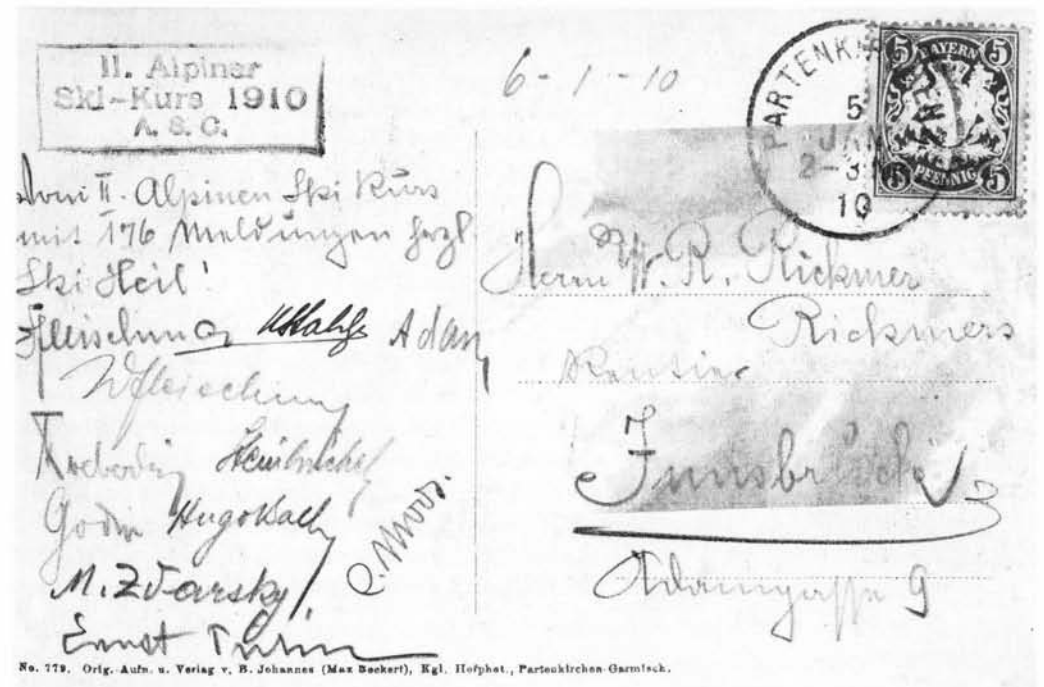 II. Alpiner
Ski-Kurs 1910
A. S. C.
6 - 1 - 10
PARTENKIRCHEN
5
JAN
2-3
10
5 BAYERN 5
5 PFENNIG 5
Vom II. Alpinen Ski Kurs
mit 176 Meldungen herzl.
Ski Heil!
Adam
Godin Hugo
M. Zdarsky
Ernst
Herrn W. R. Rickmer
Rickmers
Rentier
Innsbruck
Adamgasse 9
No. 779. Orig.-Aufn. u. Verlag v. B. Johannes (Max Beckert), Kgl. Hofphot., Partenkirchen-Garmisch.